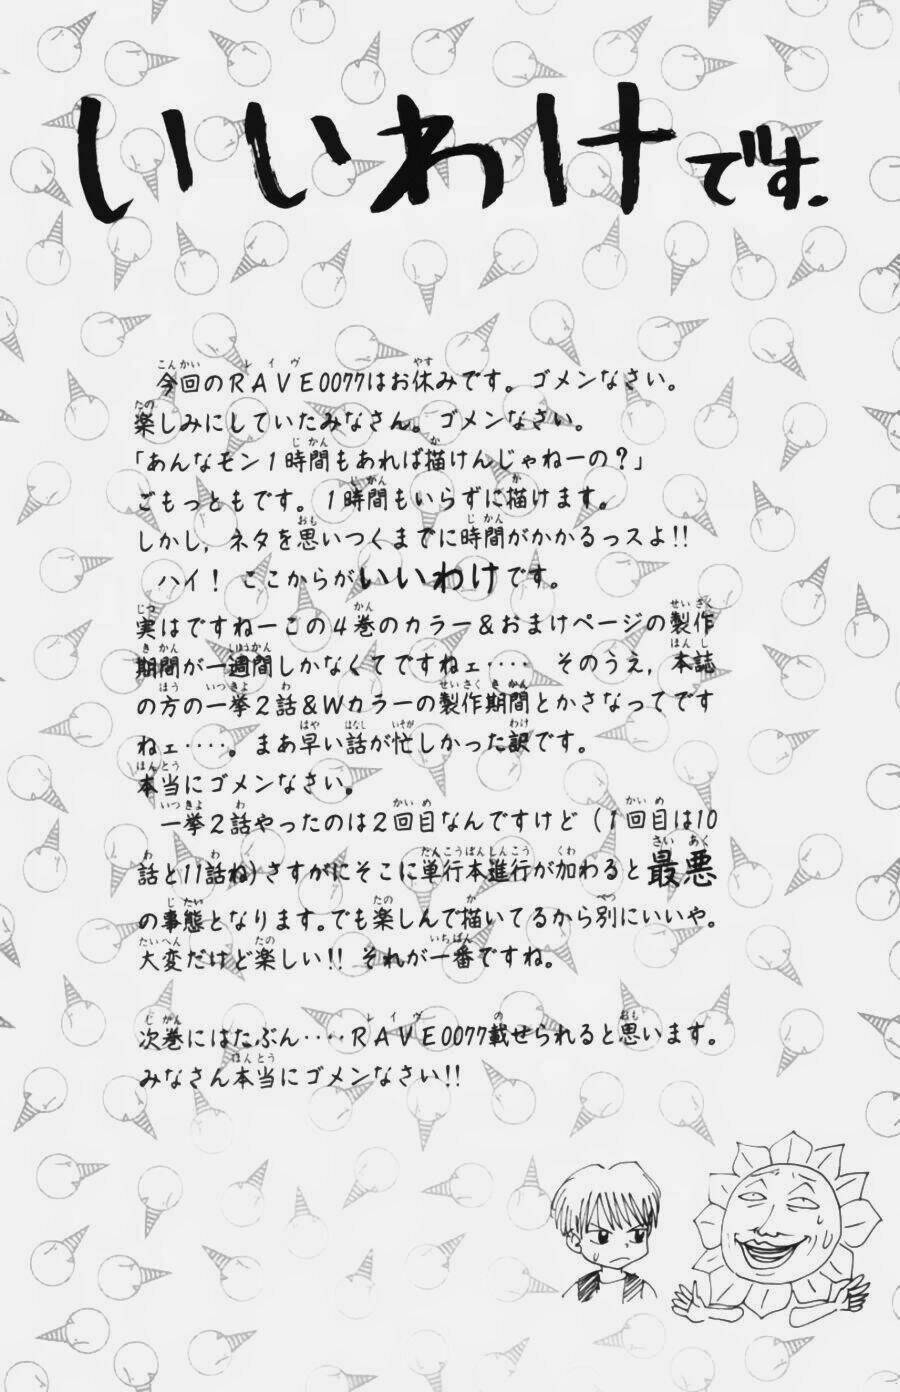 いいわけです.
今回のRAVE0077はお休みです。ゴメンなさい。
楽しみにしていたみなさん。ゴメンなさい。
「あんなモン1時間もあれば描けんじゃねーの？」
ごもっともです。1時間もいらずに描けます。
しかし, ネタを思いつくまでに時間がかかるっスよ!!
ハイ！ ここからがいいわけです。
実はですねーこの4巻のカラー＆おまけページの製作
期間が一週間しかなくてですねェ‥‥ そのうえ, 本誌
の方の一挙2話＆Wカラーの製作期間とかさなってです
ねェ‥‥。まあ早い話が忙しかった訳です。
本当にゴメンなさい。
一挙2話やったのは2回目なんですけど（1回目は10
話と11話ね)さすがにそこに単行本進行が加わると最悪
の事態となります。でも楽しんで描いてるから別にいいや。
大変だけど楽しい!! それが一番ですね。
次巻にはたぶん‥‥RAVE0077載せられると思います。
みなさん本当にゴメンなさい!!